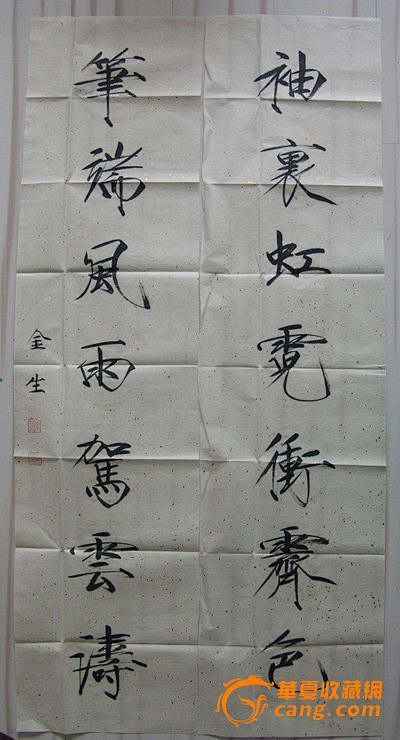 袖裏虹霓衝霽色
筆端風雨駕雲濤
金生
華夏收藏網
cang.com